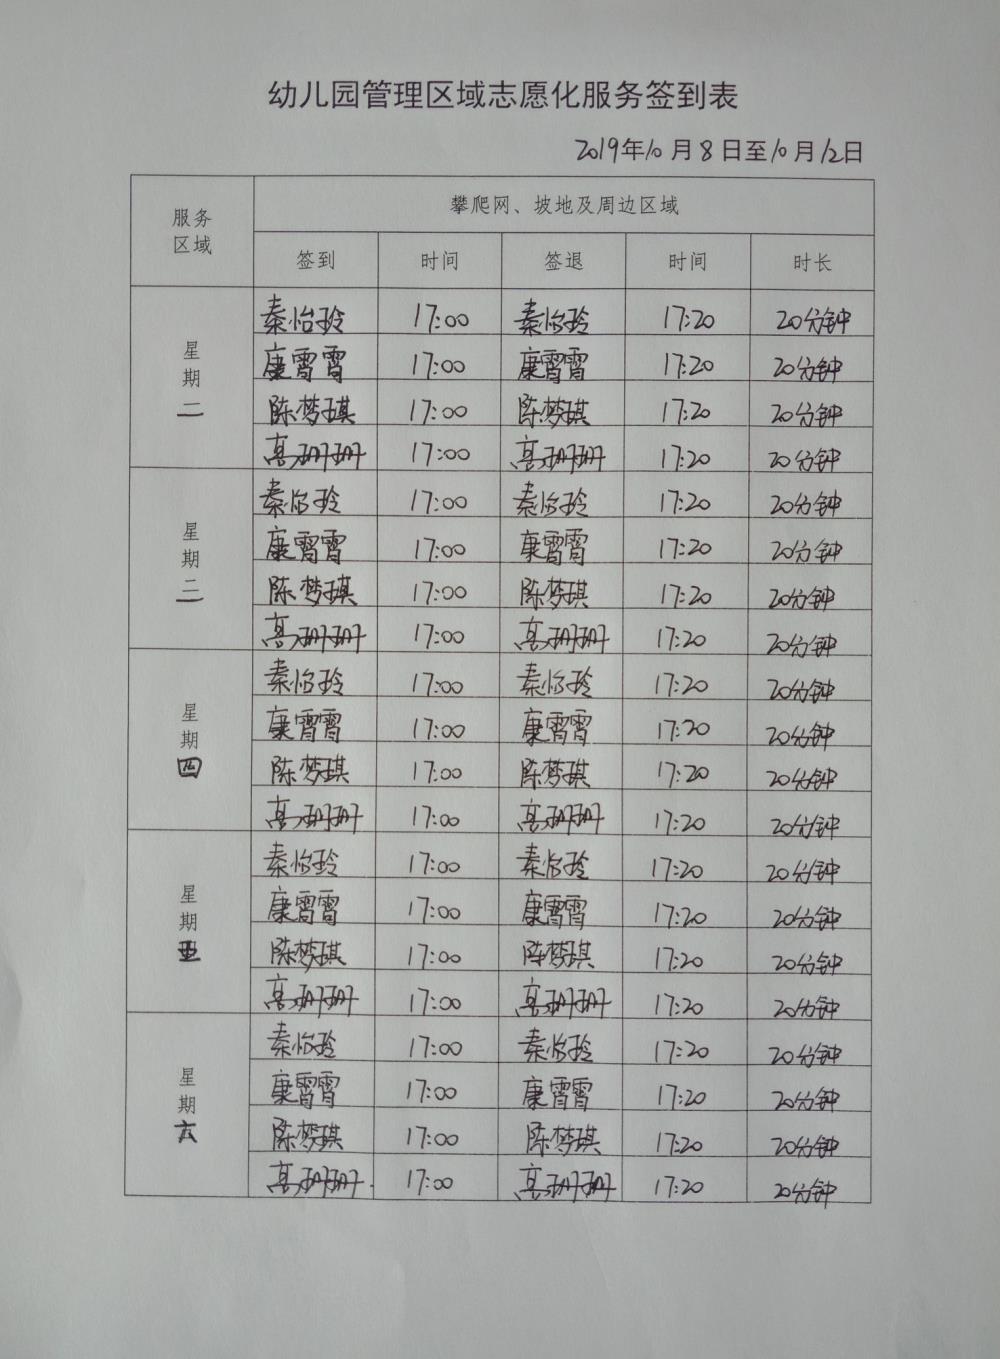 幼儿园管理区域志愿化服务签到表
2019年10月8日至10月12日
服务区域 攀爬网、坡地及周边区域
签到 时间 签退 时间 时长
星期二
秦怡玲 17:00 秦怡玲 17:20 20分钟
康霄霄 17:00 康霄霄 17:20 20分钟
陈梦琪 17:00 陈梦琪 17:20 20分钟
高珊珊 17:00 高珊珊 17:20 20分钟
星期三
秦怡玲 17:00 秦怡玲 17:20 20分钟
康霄霄 17:00 康霄霄 17:20 20分钟
陈梦琪 17:00 陈梦琪 17:20 20分钟
高珊珊 17:00 高珊珊 17:20 20分钟
星期四
秦怡玲 17:00 秦怡玲 17:20 20分钟
康霄霄 17:00 康霄霄 17:20 20分钟
陈梦琪 17:00 陈梦琪 17:20 20分钟
高珊珊 17:00 高珊珊 17:20 20分钟
星期五
秦怡玲 17:00 秦怡玲 17:20 20分钟
康霄霄 17:00 康霄霄 17:20 20分钟
陈梦琪 17:00 陈梦琪 17:20 20分钟
高珊珊 17:00 高珊珊 17:20 20分钟
星期六
秦怡玲 17:00 秦怡玲 17:20 20分钟
康霄霄 17:00 康霄霄 17:20 20分钟
陈梦琪 17:00 陈梦琪 17:20 20分钟
高珊珊 17:00 高珊珊 17:20 20分钟